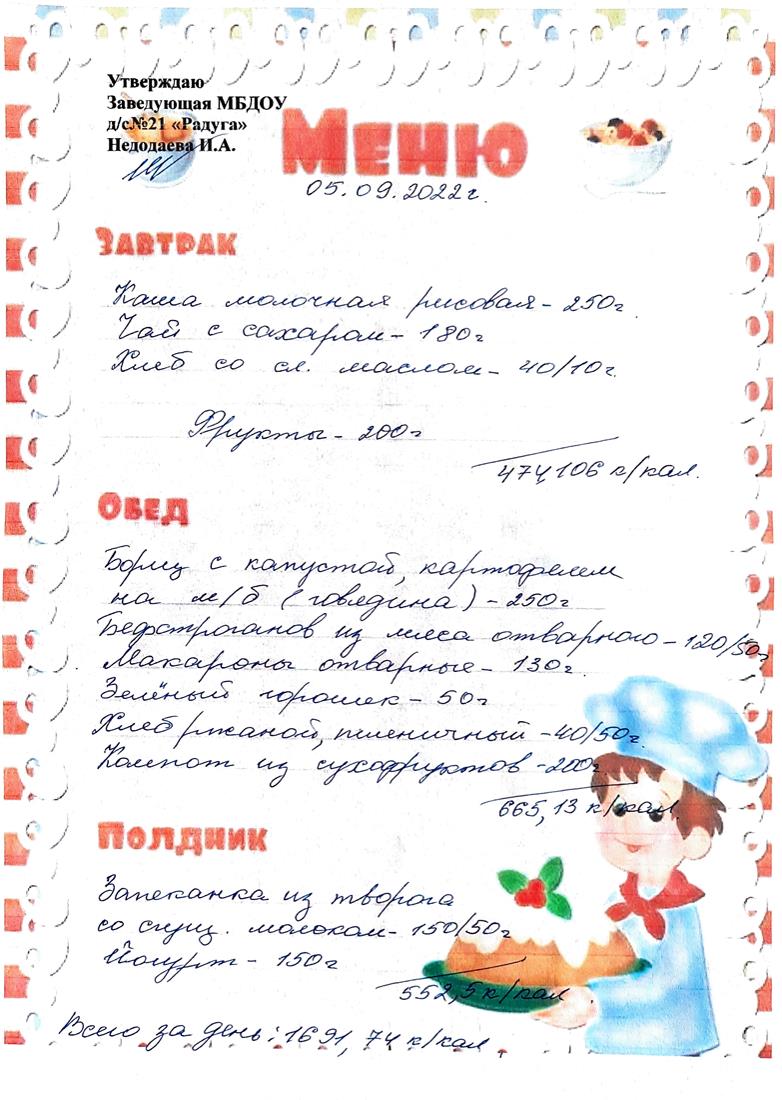 Утверждаю
Заведующая МБДОУ
д/с№21 «Радуга»
Недодаева И.А.
Меню
05.09.2022г.
Завтрак
Каша молочная рисовая - 250г.
Чай с сахаром - 180г
Хлеб со сл. маслом - 40/10г.
Фрукты - 200г
474,106 к/кал.
Обед
Борщ с капустой, картофелем
на м/б (говядина) - 250г
Бефстроганов из мяса отварного - 120/50г
Макароны отварные - 130г.
Зелёный горошек - 50г
Хлеб ржаной, пшеничный - 40/50г.
Компот из сухофруктов - 200г
665,13 к/кал.
Полдник
Запеканка из творога
со сгущ. молоком - 150/50г
Йогурт - 150г
552,5 к/кал
Всего за день: 1691,74 к/кал